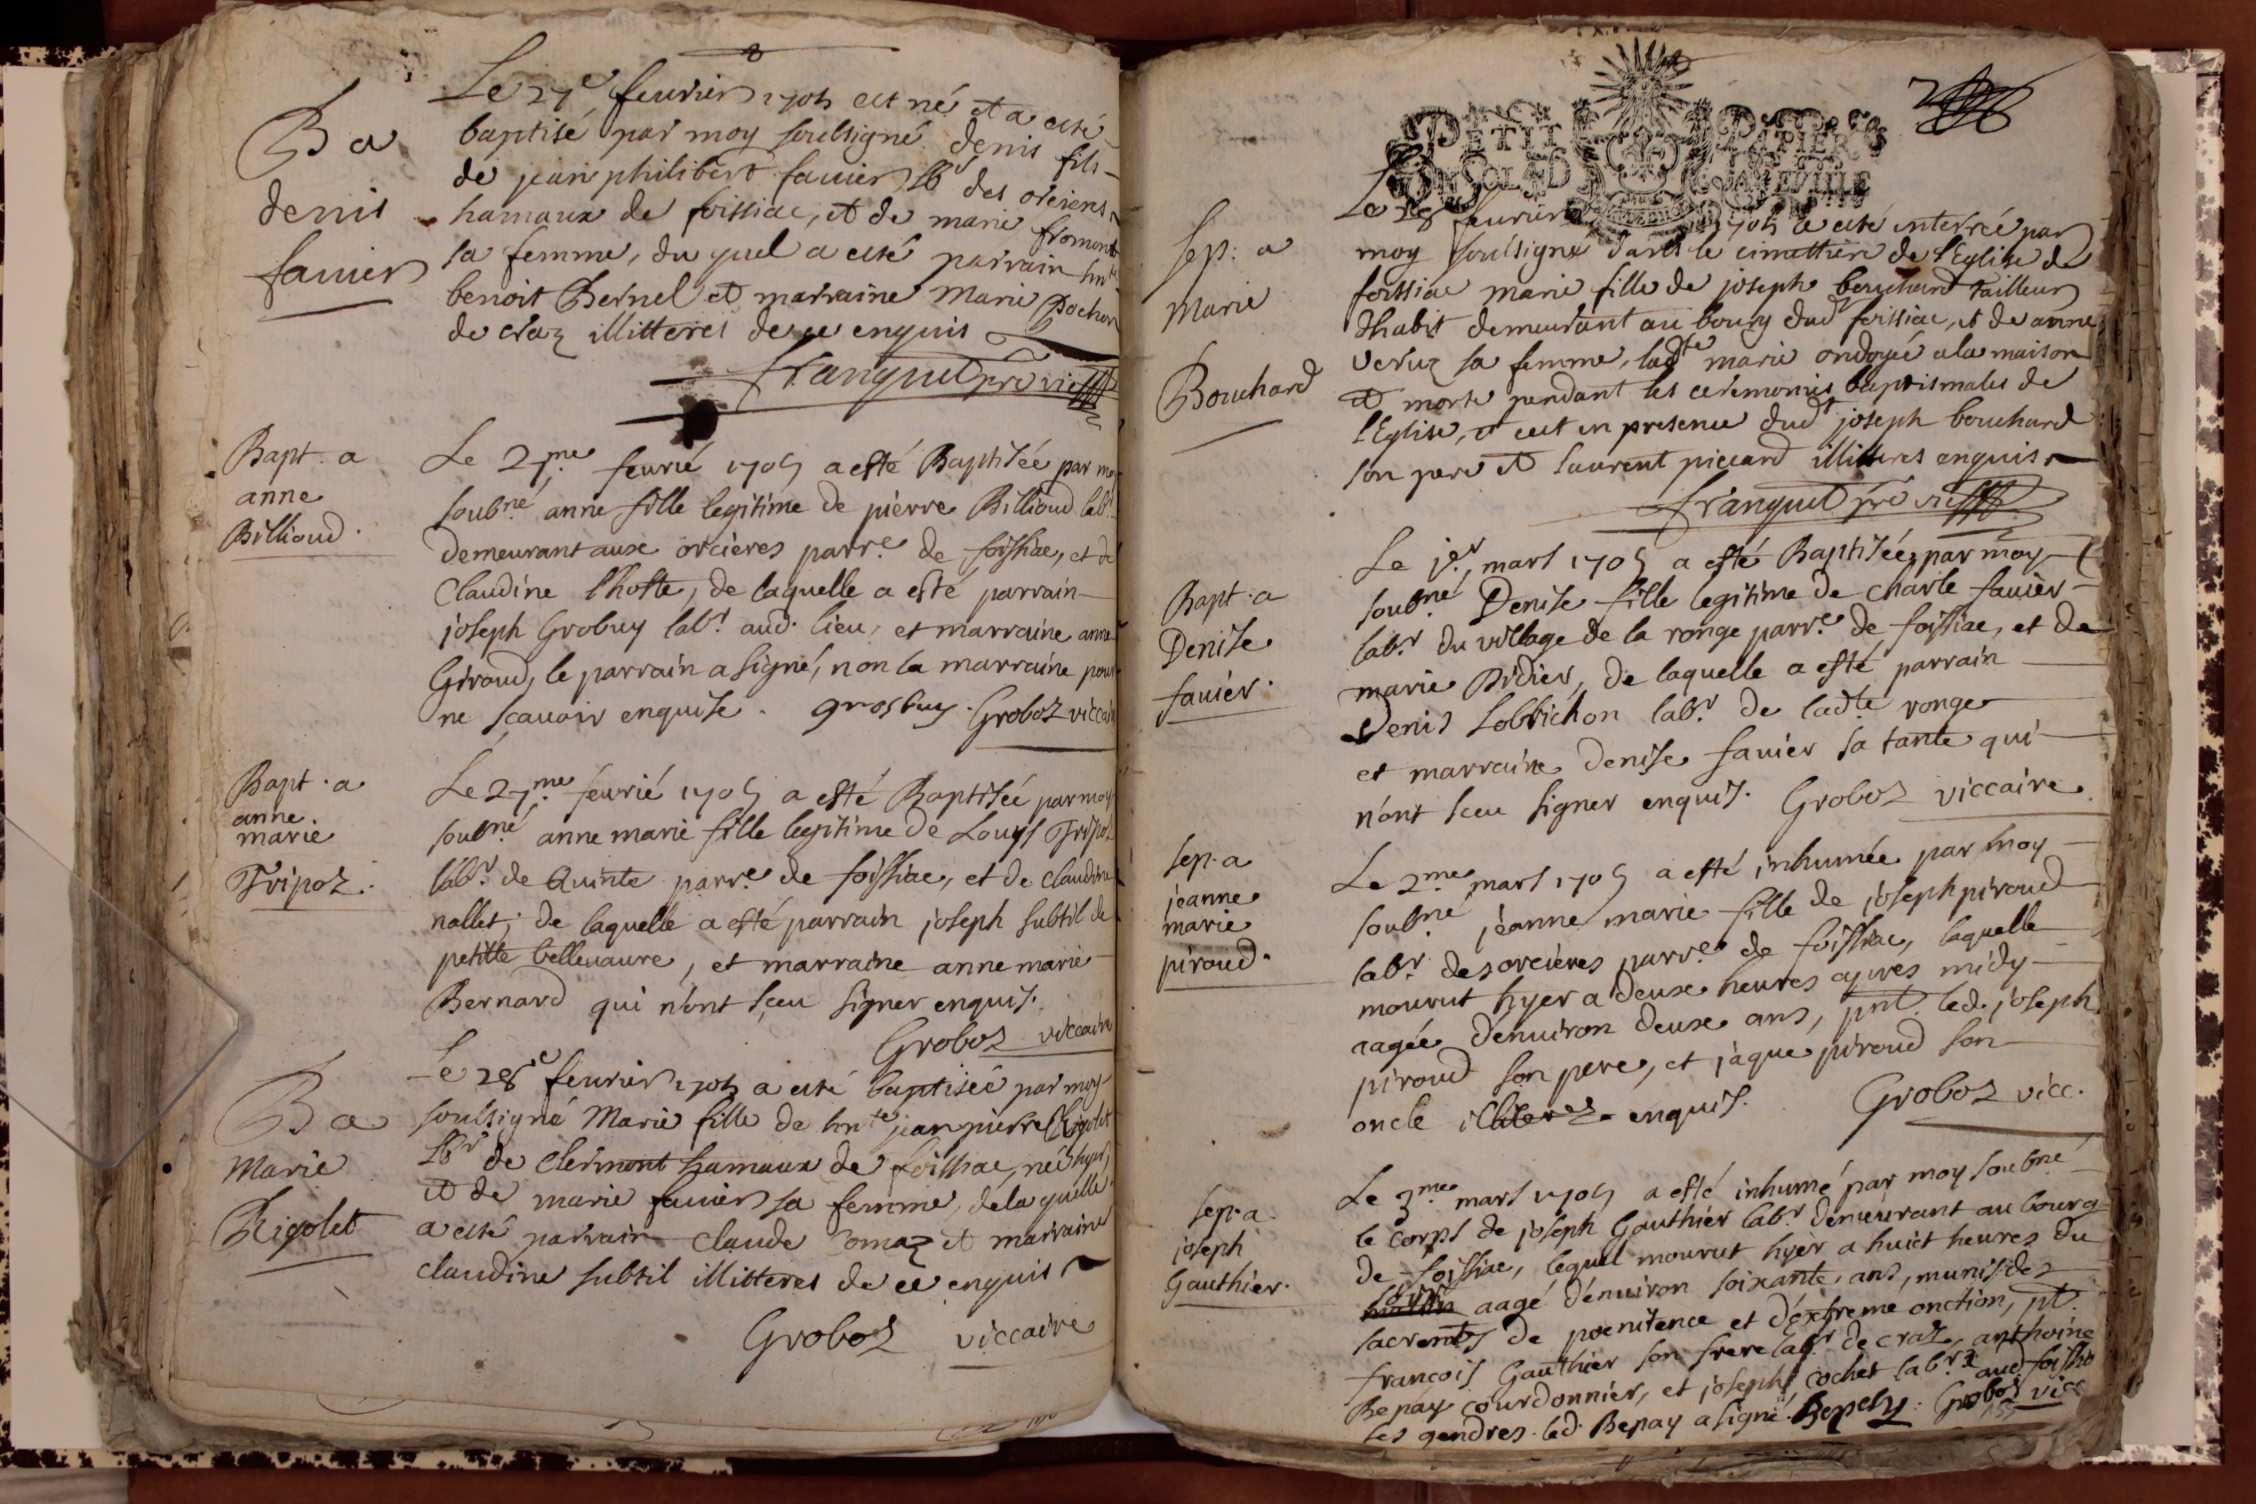 Le 27e feurier 1705 est né et a esté
baptisé par moy soubsigné denis fils
B a
denis
fauier
de jean philibert fauier lbr des orcieres
hamaux de foissiac, et de marie fromont
sa femme, du quel a esté parrain hnte
benoit Bernel et marraine Marie Pochon
de craz illitteres de ce enquis
franquet pre vic
Bapt. a
anne
Billioud.
Le 27me feurié 1705 a esté Baptisée par moy
soubné anne fille legitime de pierre Billioud labr
demeurant aux orcieres parre de foissiac, et de
Claudine l'hoste, de laquelle a esté parrain
joseph Grobuy labr aud. lieu, et marraine anne
Giroud, le parrain a signé, non la marraine pour
ne scauoir enquise. grosbuy. Groboz viccaire
Bapt. a
anne
marie
Tripoz.
Le 27me feurié 1705 a esté Baptisée par moy
soubné anne marie fille legitime de Louys Tripoz
labr de Quinte parre de foissiac, et de claudine
nallet, de laquelle a esté parrain joseph subtil de
petitte belleuaure, et marraine anne marie
Bernard qui n'ont sceu signer enquis.
Groboz viccaire
B a
Marie
Rigolet
Le 28e feurier 1705 a esté baptisée par moy
soulsigné Marie fille de hnte jean pierre Rigolet
lbr de clermont hamaux de foissiac, née hyer,
et de marie fauier sa femme, de la quelle
a esté parrain claude comaz et marraine
claudine subtil illitteres de ce enquis
Groboz viccaire
PETIT PAPIER
Sep. a
Marie
Bouchard
Le 28 feurier 1705 a esté interrée par
moy soulsigné dans le cimettiere de l'Eglise de
foissiac marie fille de joseph bouchard tailleur
d'habit demeurant au bourg dud foissiac, et de anne
veruz sa femme, ladte marie ondoyée a la maison
et morte pendant les ceremonies baptismales de
l'Eglise, et cest en presence dudt joseph bouchard
son pere et laurent piccard illitteres enquis
franquet pre vic
Bapt. a
Denise
fauier.
Le 1er mars 1705 a esté Baptisée par moy
soubné Denise fille legitime de charle fauier
labr du village de la ronge parre de foissiac, et de
marie Didier, de laquelle a esté parrain
Denis Lobrichon labr de ladte ronge
et marraine Denise fauier sa tante qui
n'ont sceu signer enquis. Groboz viccaire
sep. a
jeanne
marie
piroud.
Le 2me mars 1705 a esté inhumée par moy
soubné jeanne marie fille de joseph piroud
labr des orcieres parre de foissiac, laquelle
mourut hyer a deux heures apres midy
aagée d'enuiron deux ans, pnt led. joseph
piroud son pere, et jaque piroud son
oncle illiteres enquis. Groboz vicc.
sep. a
joseph
Gauthier.
Le 3me mars 1705 a esté inhumé par moy soubné
le corps de joseph Gauthier labr demeurant au bourg
de foissiac, lequel mourut hyer a huict heures du
soir aagé d'enuiron soixante ans, munis des
sacrents de poenitence et d'extreme onction, pt.
françois Gauthier son frere labr de craz, anthoine
Bepay courdonnier, et joseph cochet labr aud foissiac
ses gendres. led. Bepay a signé. Bepay. Groboz vicc